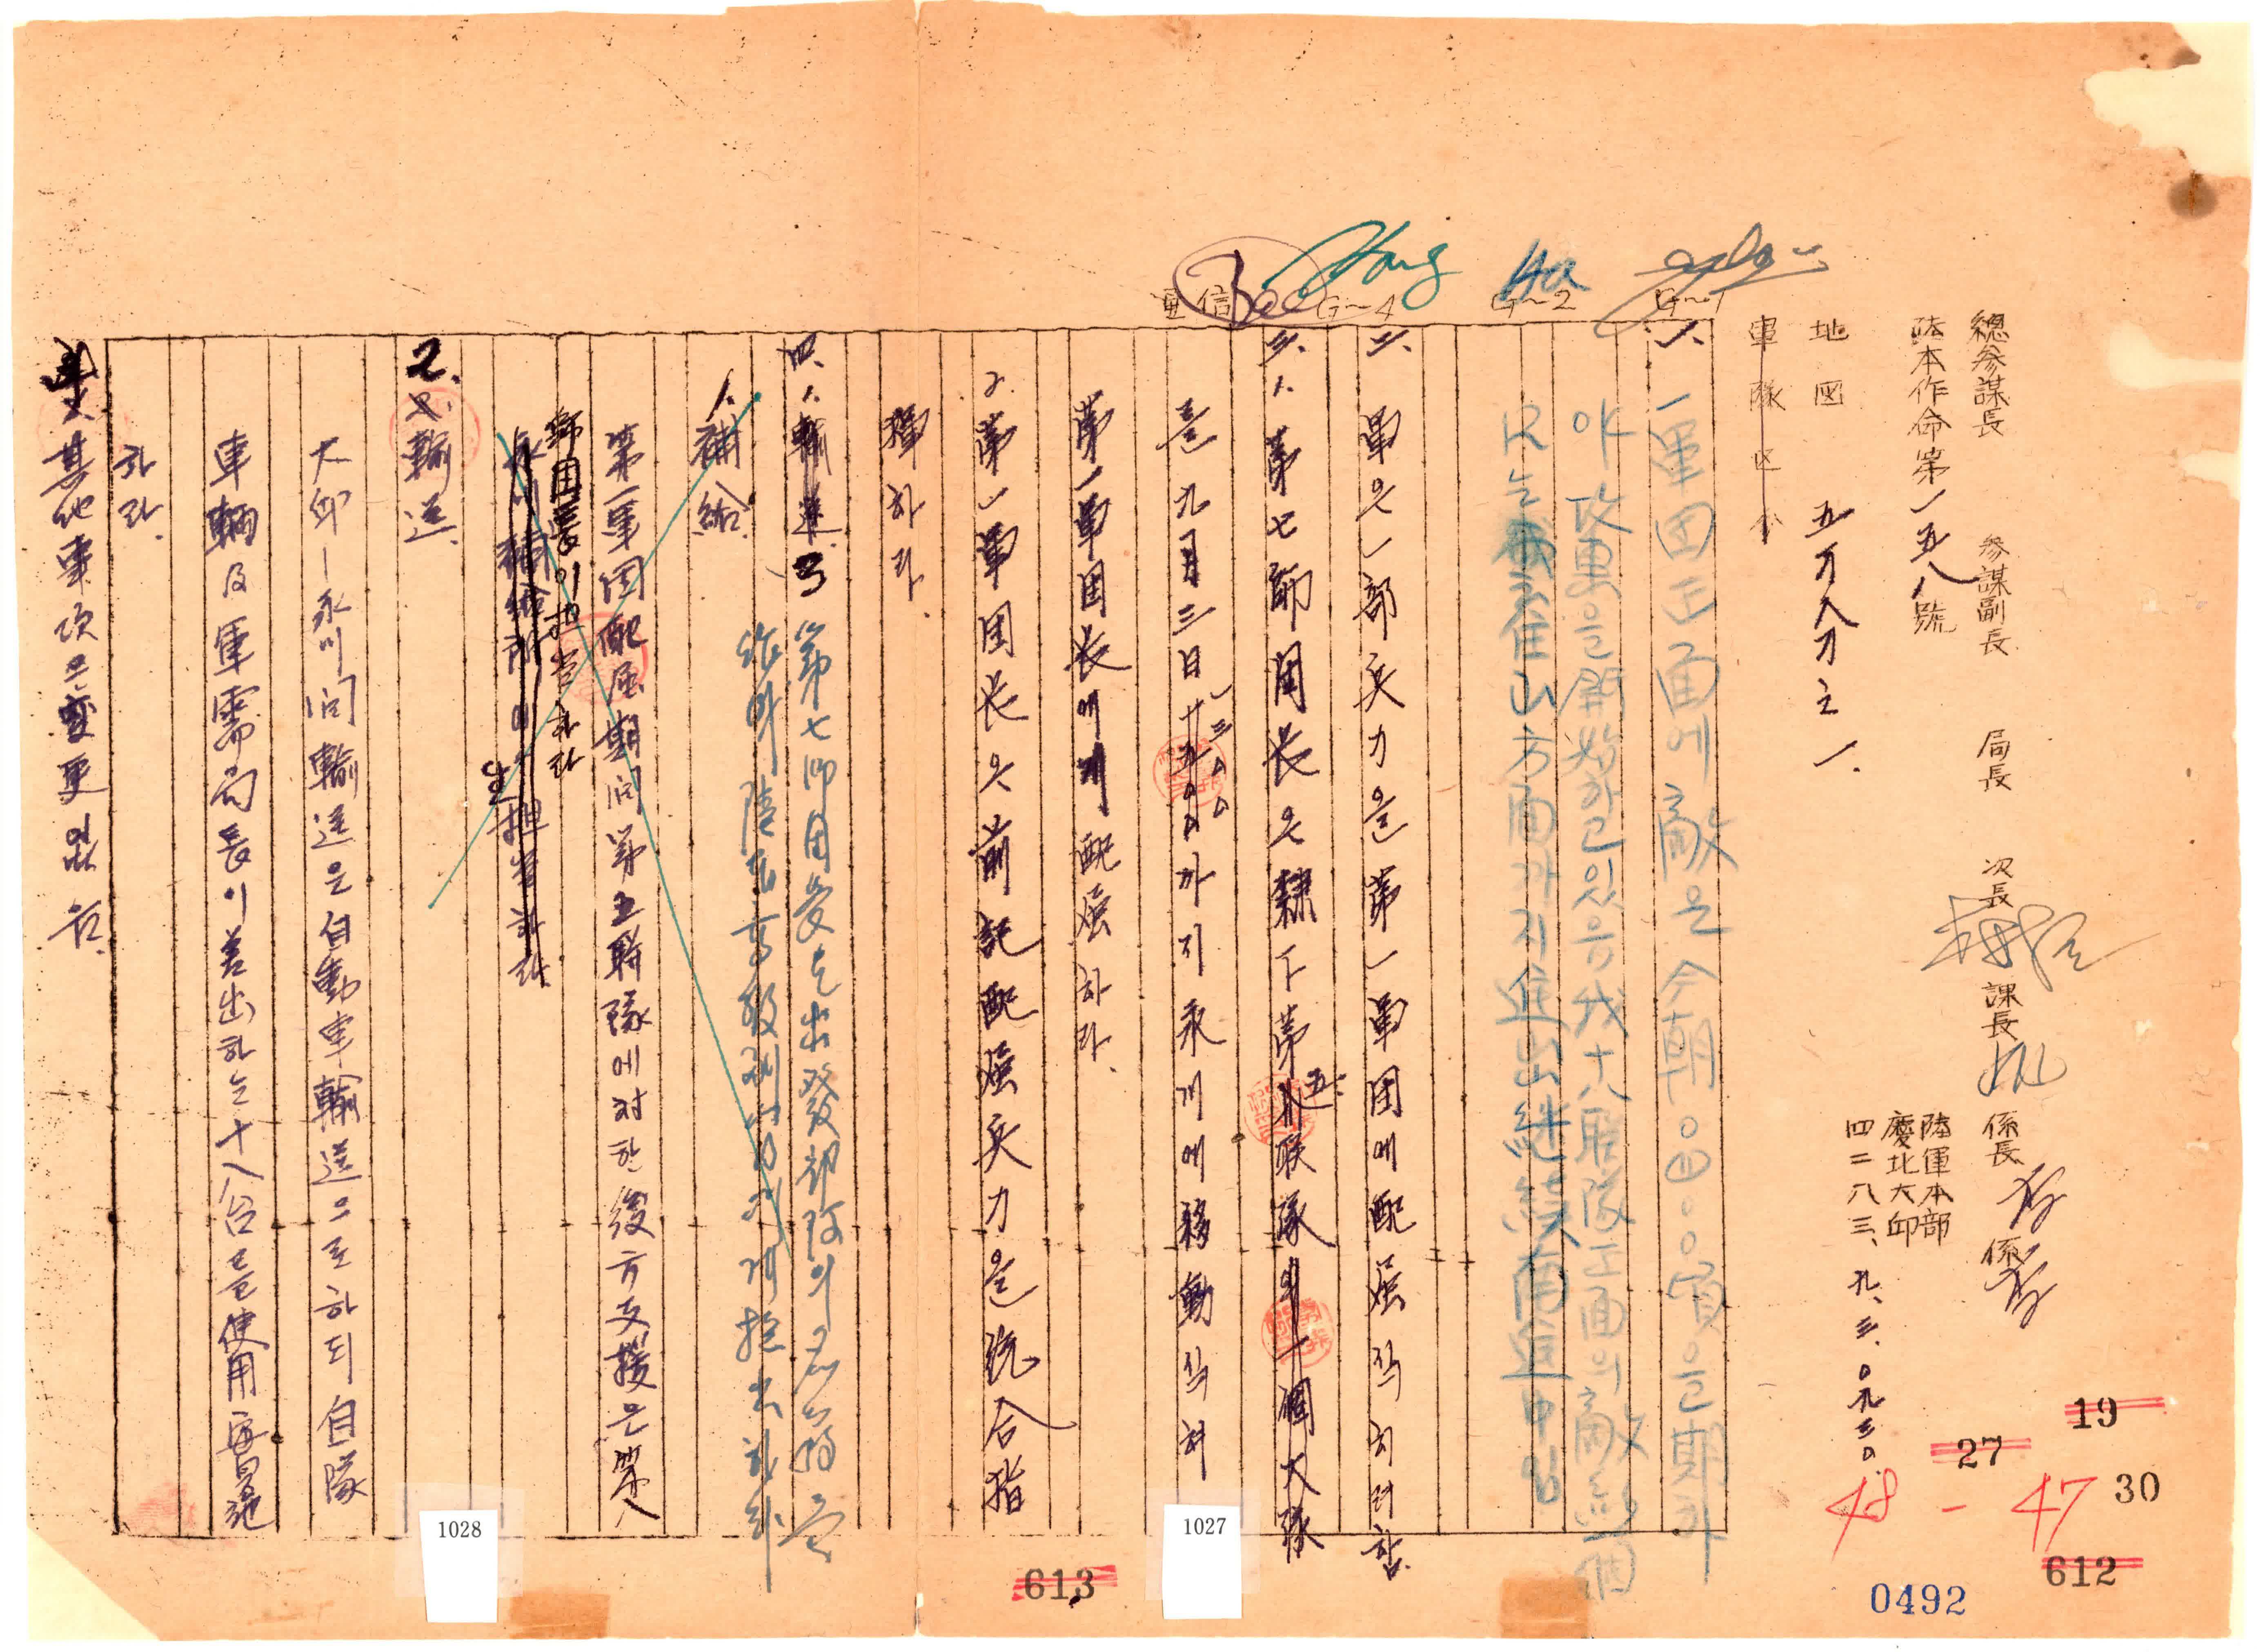 總參謀長 參謀副長 局長 次長 課長 係長 係
陸本作命第一五八號
陸軍本部
慶北大邱
四二八三、九、三、〇九三〇.
地図 五万八刀之一.
軍隊区分
G~1 G~2 G~4 通信
一、一軍団正面에敵은今朝〇四.〇〇頃을期하
야攻勢을開始하고있음我十八聯隊正面의敵約一個
R는雲住山方面까지進出継續南進中임
二、軍은一部兵力을第一軍団에配屬식히려함.
三、1、第七師団長은隷下第五联隊의一個大隊
를九月三日十五〇〇一三〇〇까지永川에移動식혀
第一軍団長에게配屬하라.
2.第一軍団長은前記配屬兵力을統合指
揮하라.
四、1、輸送. 3 第七師団長은出發部隊의
1.補給.
第一軍団配屬期間第五聯隊에対한後方支援은第八
師団長이担当하라
永川補給所에서担当하라
2.輸送.
大邱—永川间輸送은自動車輸送으로하되自隊
車輛及軍需局長이差出하는十八台를使用実施
하라.
其他事項은変更없음.
19
27
30
48 - 47
612
0492
1027
613
1028